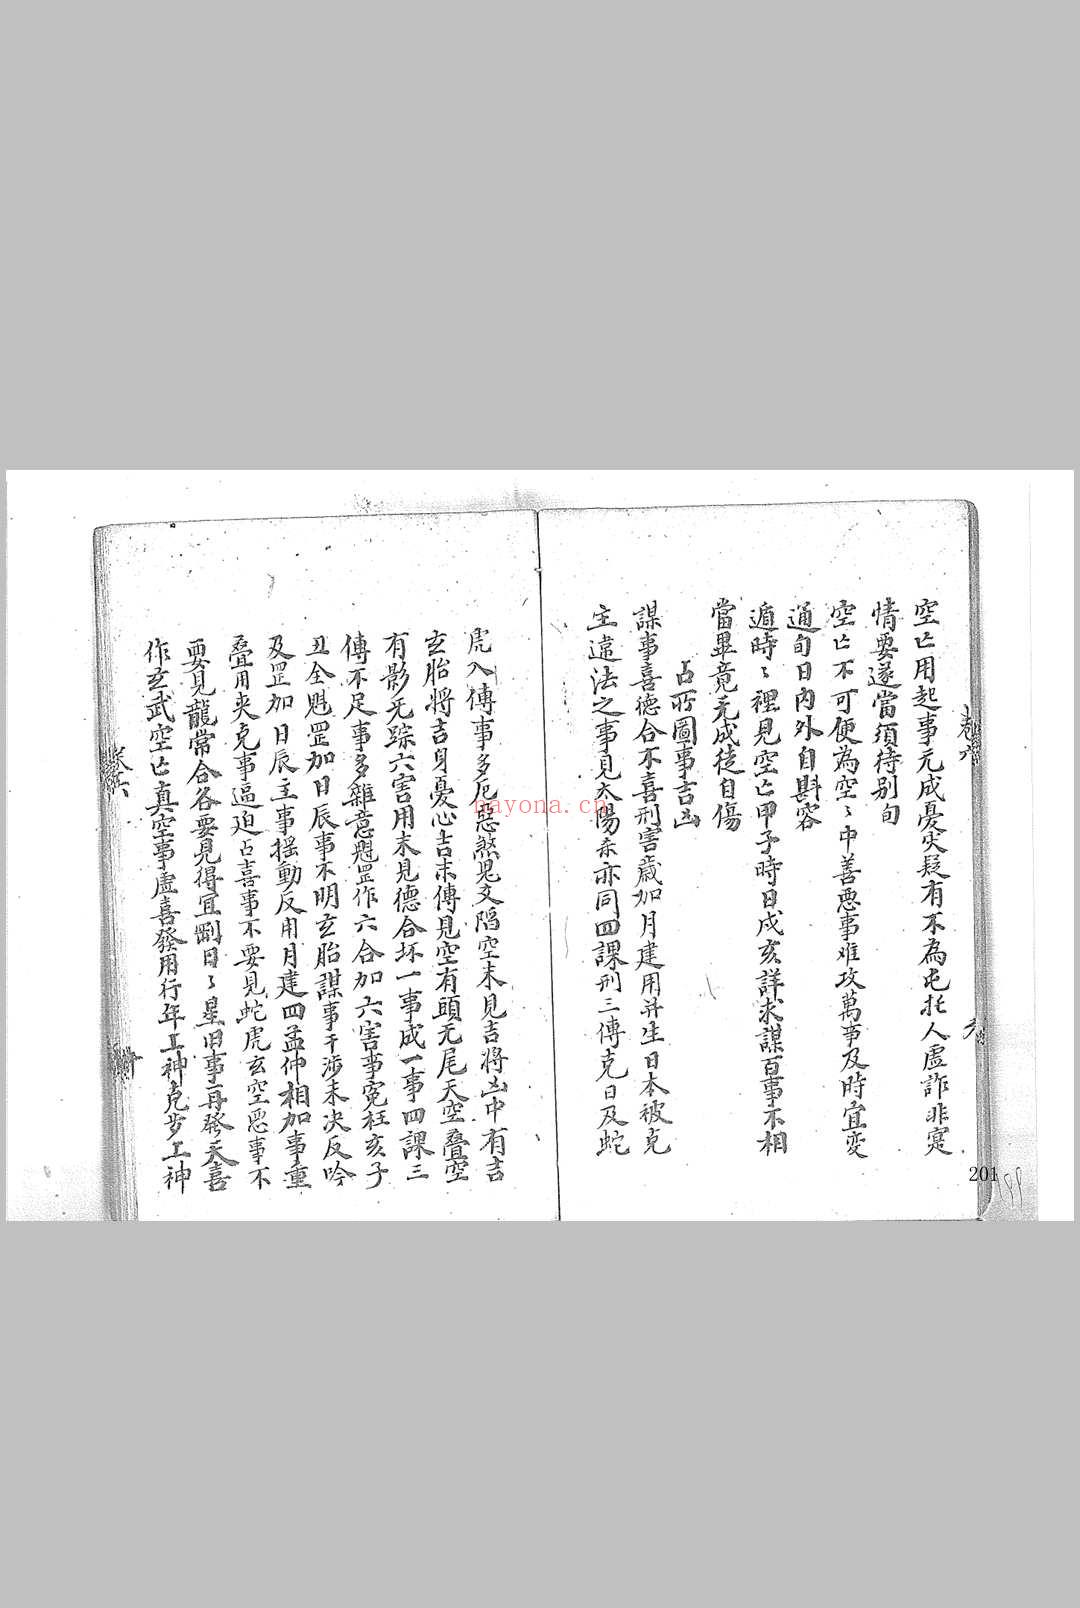 空亡用起事元成憂災疑有不為屯托人虛詐非寔
情要遂當須待別旬
空亡不可便為空〻中善悪事难攻萬事及時宜变
通旬日內外自斟容
遁時〻裡見空亡甲子時日戌亥詳求謀百事不相
當畢竟无成徒自傷
占所圖事吉凶
謀事喜德合不喜刑害歲加月建用并生日本被克
主違法之事見太陽亲亦同四課刑三傳克日及蛇
虎入傳事多厄惡煞児交陷空末見吉將凶中有吉
玄胎將吉身憂心吉末傳見空有頭无尾天空叠空
有影无踪六害用末見德合坏一事成一事四課三
傳不足事多雜意魁罡作六合加六害事寃枉亥子
丑全魁罡加日辰事不明玄胎謀事干涉未决反吟
及罡加日辰主事摇動反用月建四孟仲相加事重
叠用夹克事逼迫占喜事不要見蛇虎玄空惡事不
要見龍常合各要見得宜劚日〻星旧事再發天喜
作玄武空亡真空事虛喜發用行年上神克岁上神
卷六
201
nayona.cn